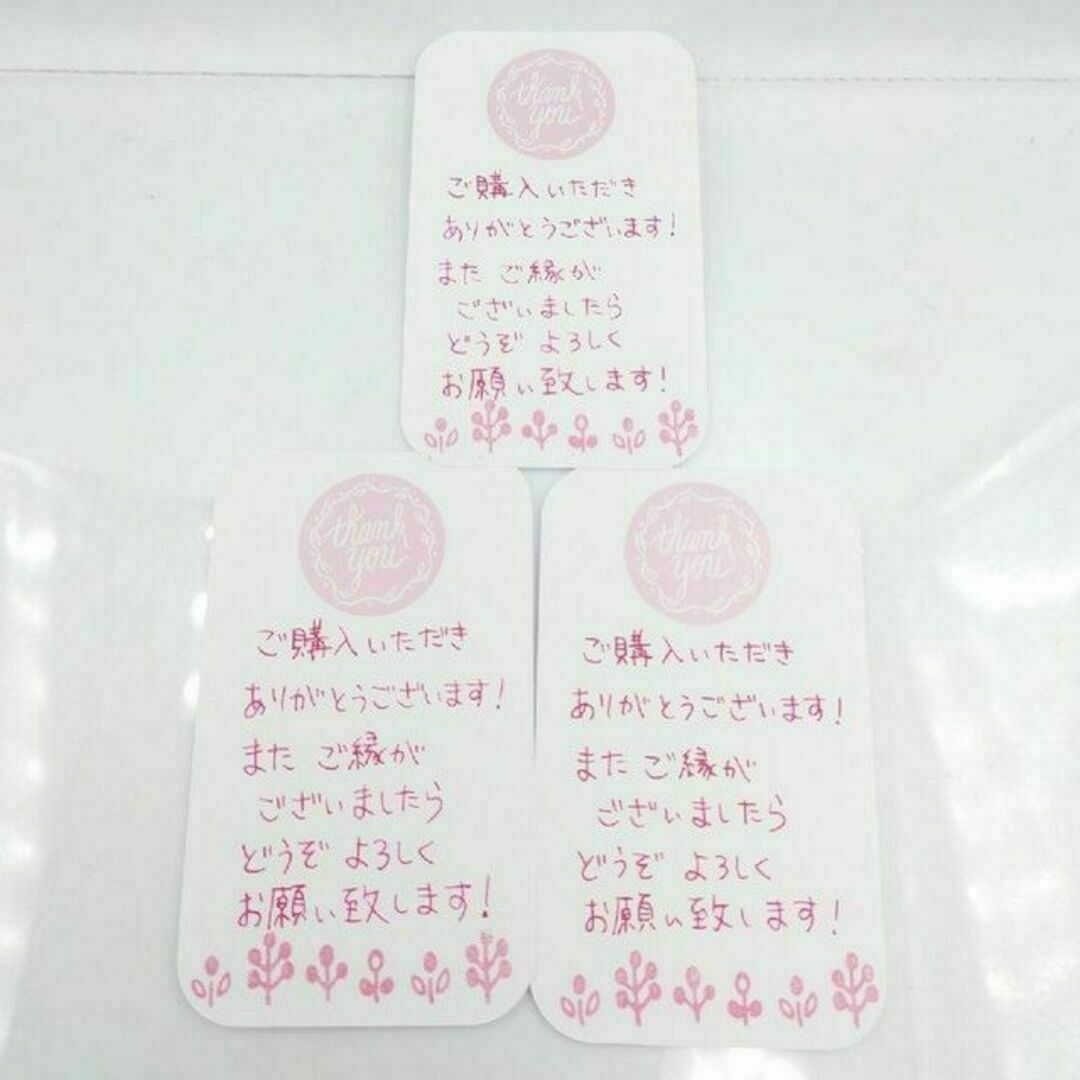 thank
you
ご購入いただき
ありがとうございます!
また ご縁が
ございましたら
どうぞ よろしく
お願い致します!
thank
you
ご購入いただき
ありがとうございます!
また ご縁が
ございましたら
どうぞ よろしく
お願い致します!
thank
you
ご購入いただき
ありがとうございます!
また ご縁が
ございましたら
どうぞ よろしく
お願い致します!